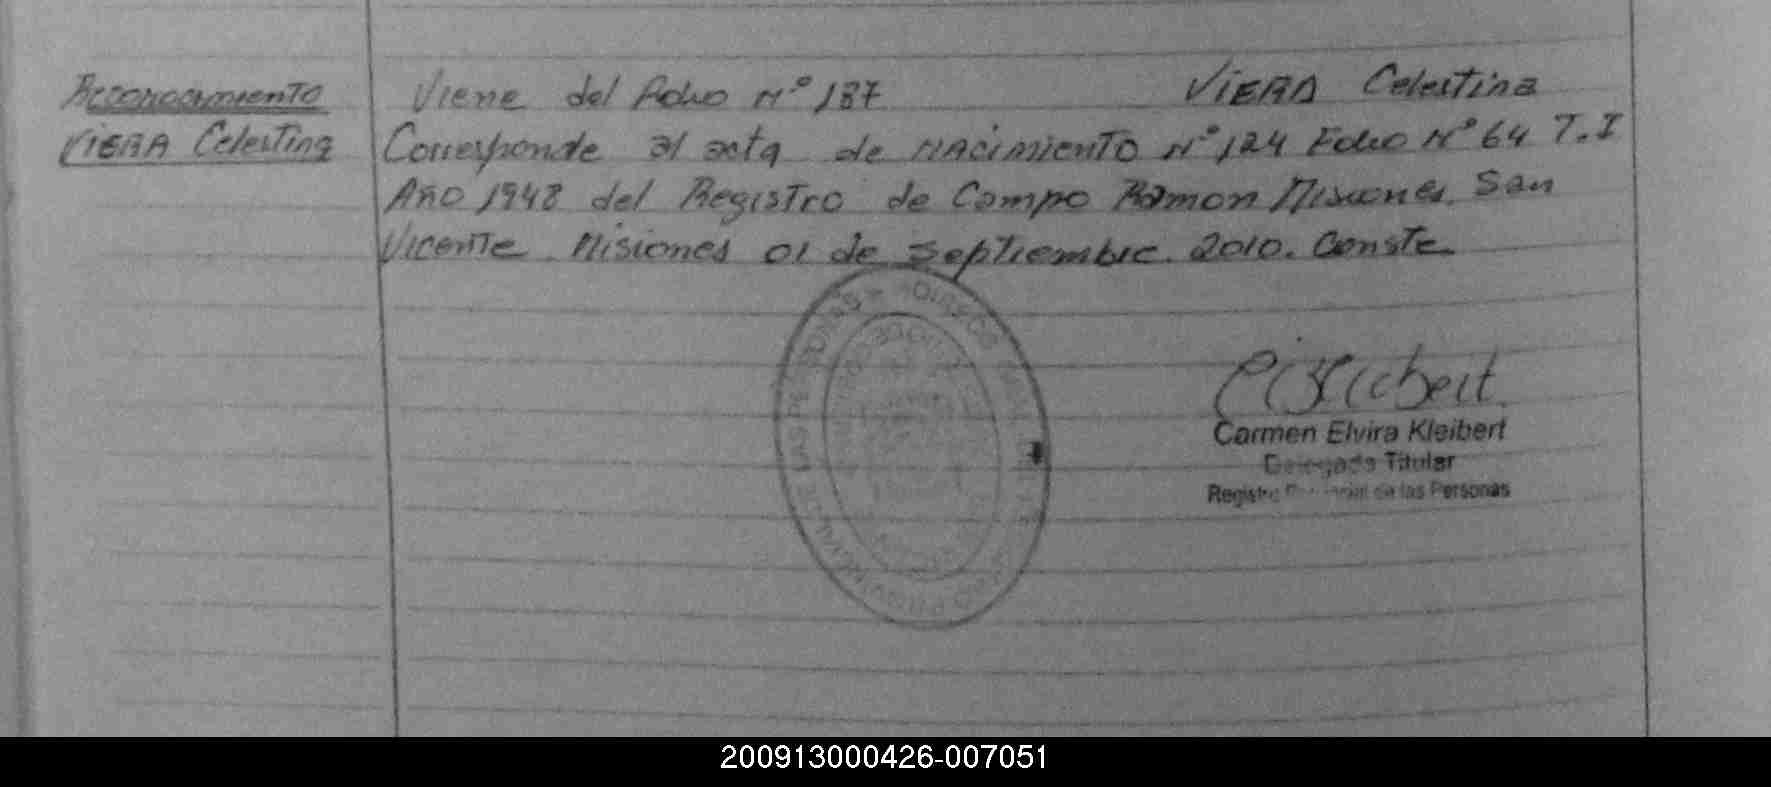 Reconocimiento
VIERA Celestina
Viene del Folio N° 187 VIERA Celestina
Corresponde al acta de NACimienTO N° 124 Folio N° 64 T.I
Año 1948 del Registro de Campo Ramon Misiones. San
Vicente. Misiones 01 de Septiembre. 2010. Conste
Carmen Elvira Kleibert
Delegada Titular
Registro Provincial de las Personas
200913000426-007051